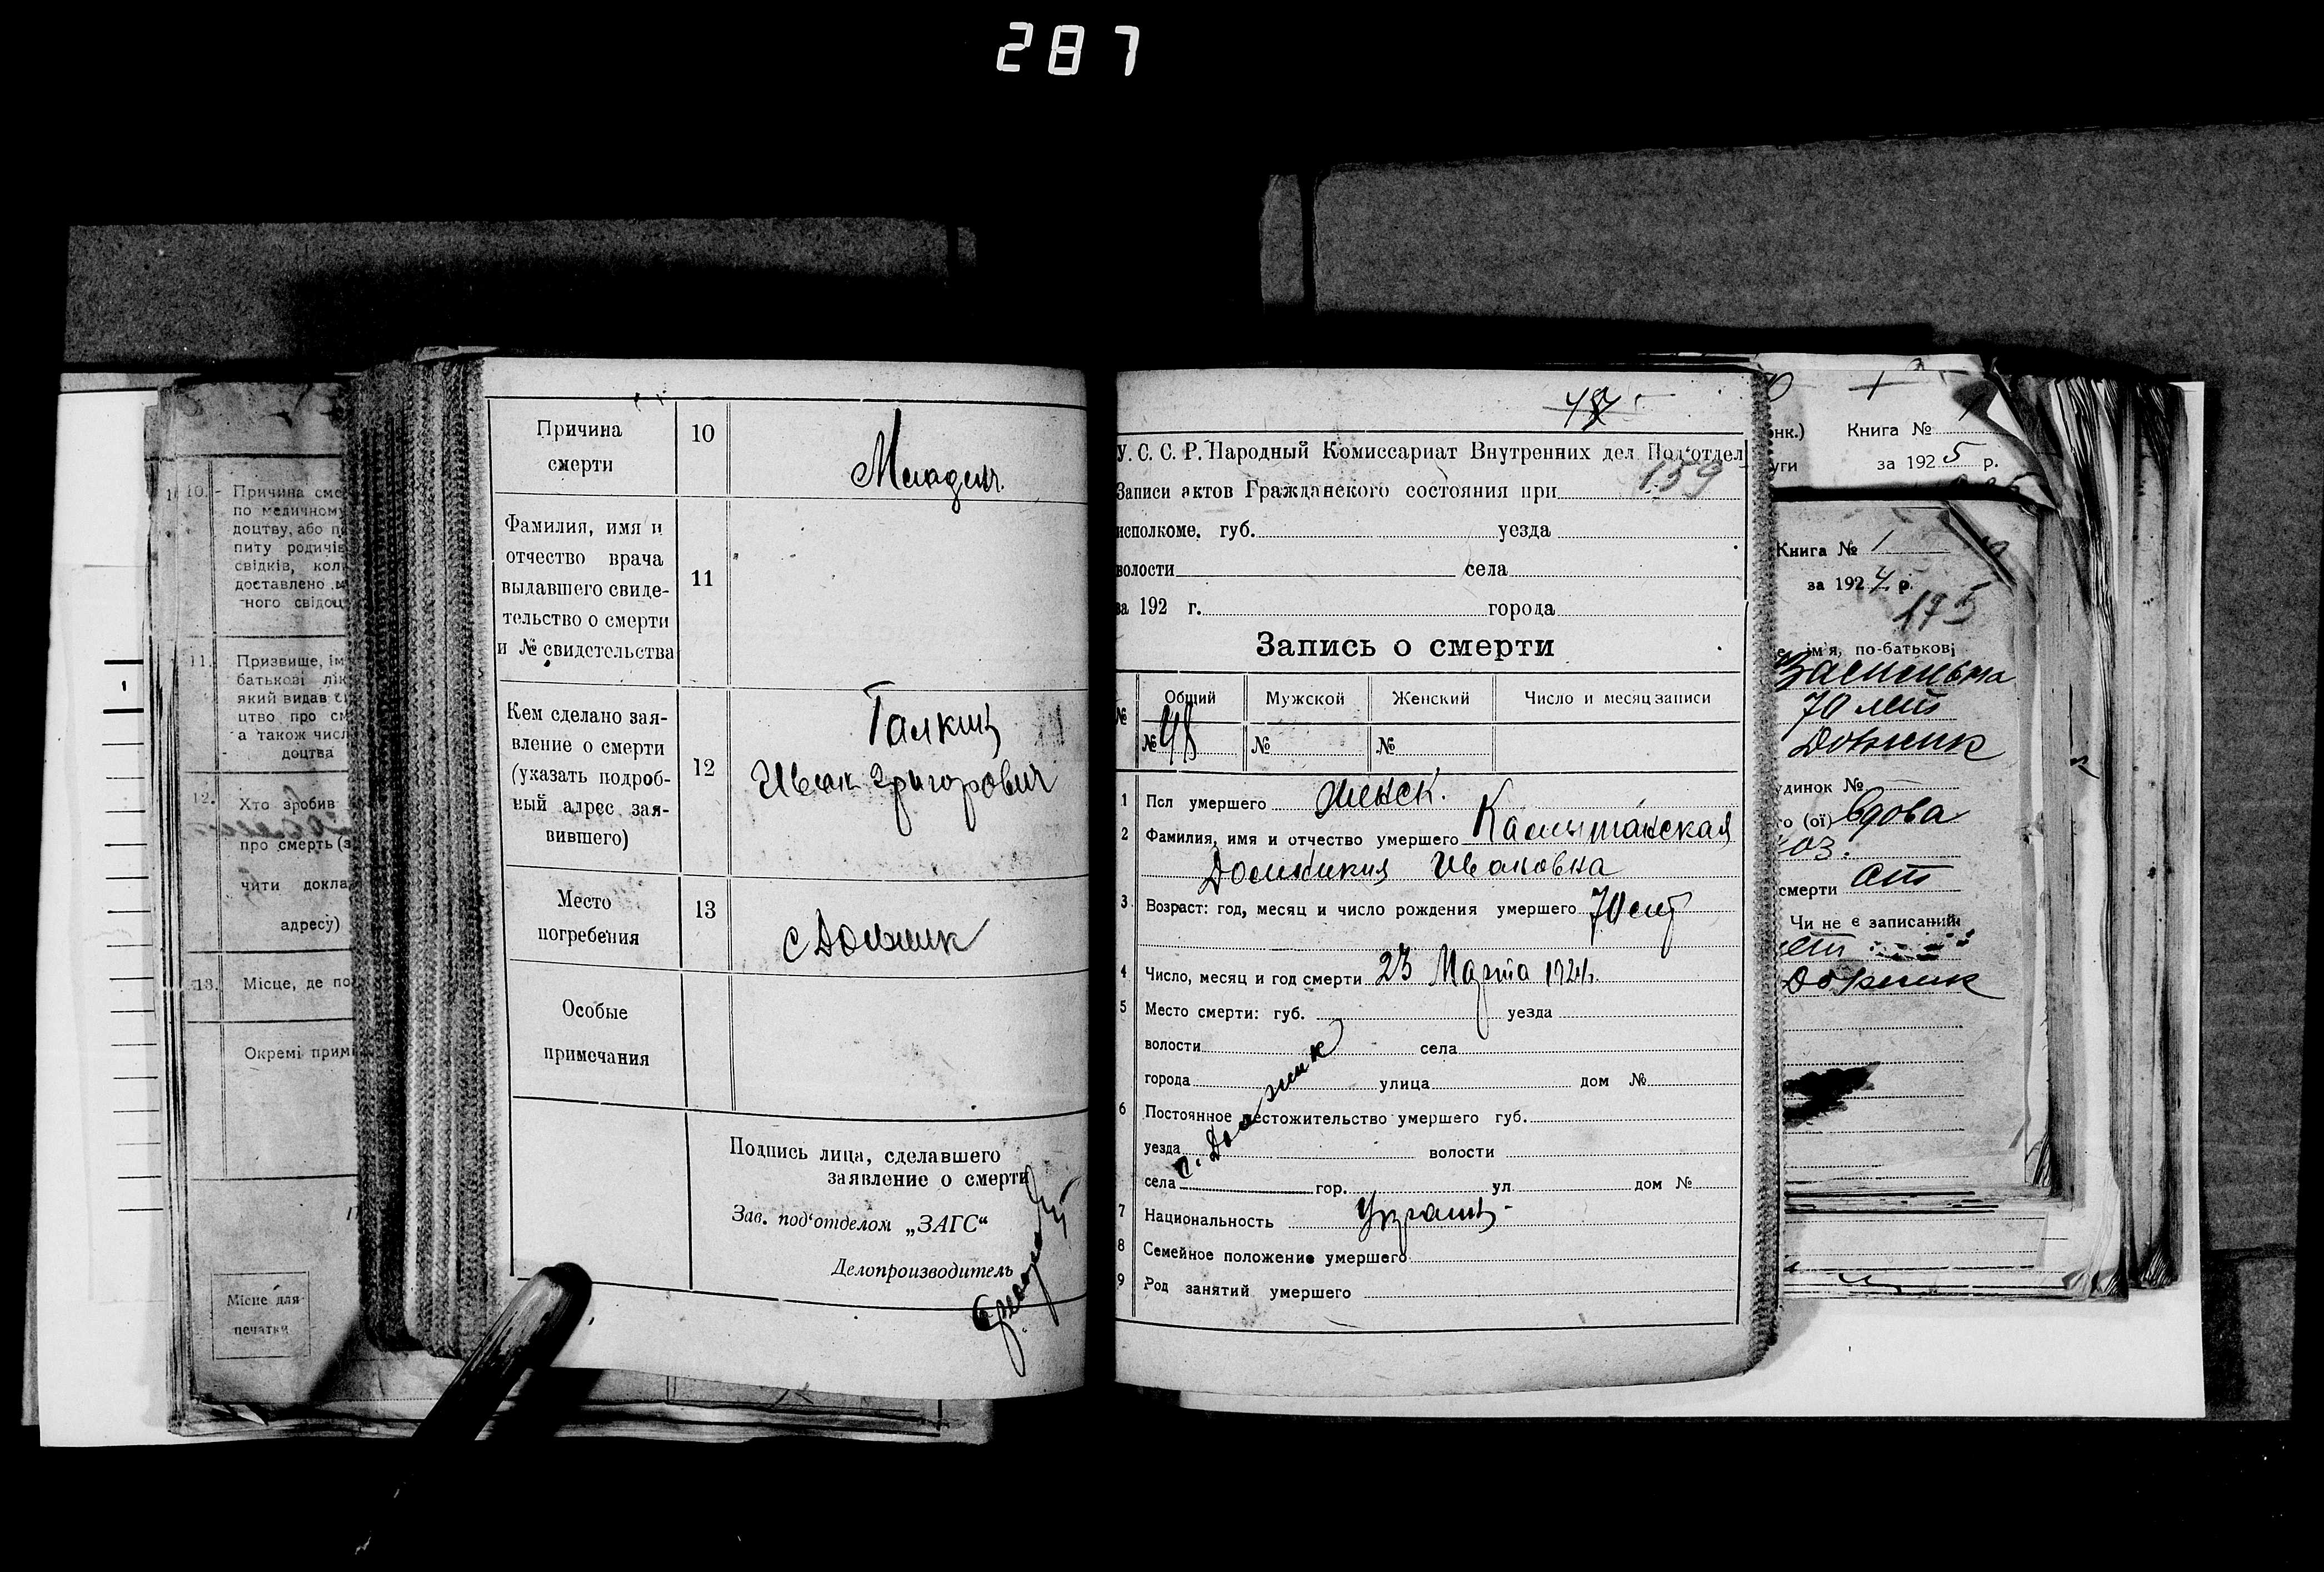 287
Причина
смерти
10
Младен.
Фамилия, имя и
отчество врача
выдавшего свиде-
тельство о смерти
и № свидетельства
11
Кем сделано зая-
вление о смерти
(указать подроб-
ный адрес зая-
вившего)
12
Галкин
Иван Григорович
Место
погребения
13
с Должик
Особые
примечания
Подпись лица, сделавшего
заявление о смерти
Зав. под'отделом „ЗАГС“
Делопроизводитель
10. Причина сме
по медичному
доцтву, або п
питу родичів
свідків, кол
доставлено м
ного свідоц
11. Призвище, ім
батькові лік
який видав с
цтво про см
а також числ
доцтва
12. Хто зробив
про смерть (з
чити докла
адресу)
13. Місце, де по
Окремі примі
Місце для
печатки
У. С. С. Р. Народный Комиссариат Внутренних дел Под'отдел
159
Записи актов Гражданского состояния при
исполкоме. губ. уезда
волости села
за 192 г. города
Запись о смерти
№ Общий Мужской Женский Число и месяц записи
№ 48 № №
1 Пол умершего женск.
2 Фамилия, имя и отчество умершего
Ивановна
3 Возраст: год, месяц и число рождения умершего 70 лет
4 Число, месяц и год смерти 23 Марта 1924г.
5 Место смерти: губ. уезда
волости села
города улица дом №
с. Должик
6 Постоянное местожительство умершего губ.
уезда волости
села гор. ул. дом №
7 Национальность Украин.
8 Семейное положение умершего
9 Род занятий умершего
нк.) Книга №
уги за 1925 р.
Книга № 1
за 1924 р.
175
е, ім'я, по-батькові
70 лет
Должик
удинок №
го (ої) вдова
смерти
Чи не є записаний
Должик